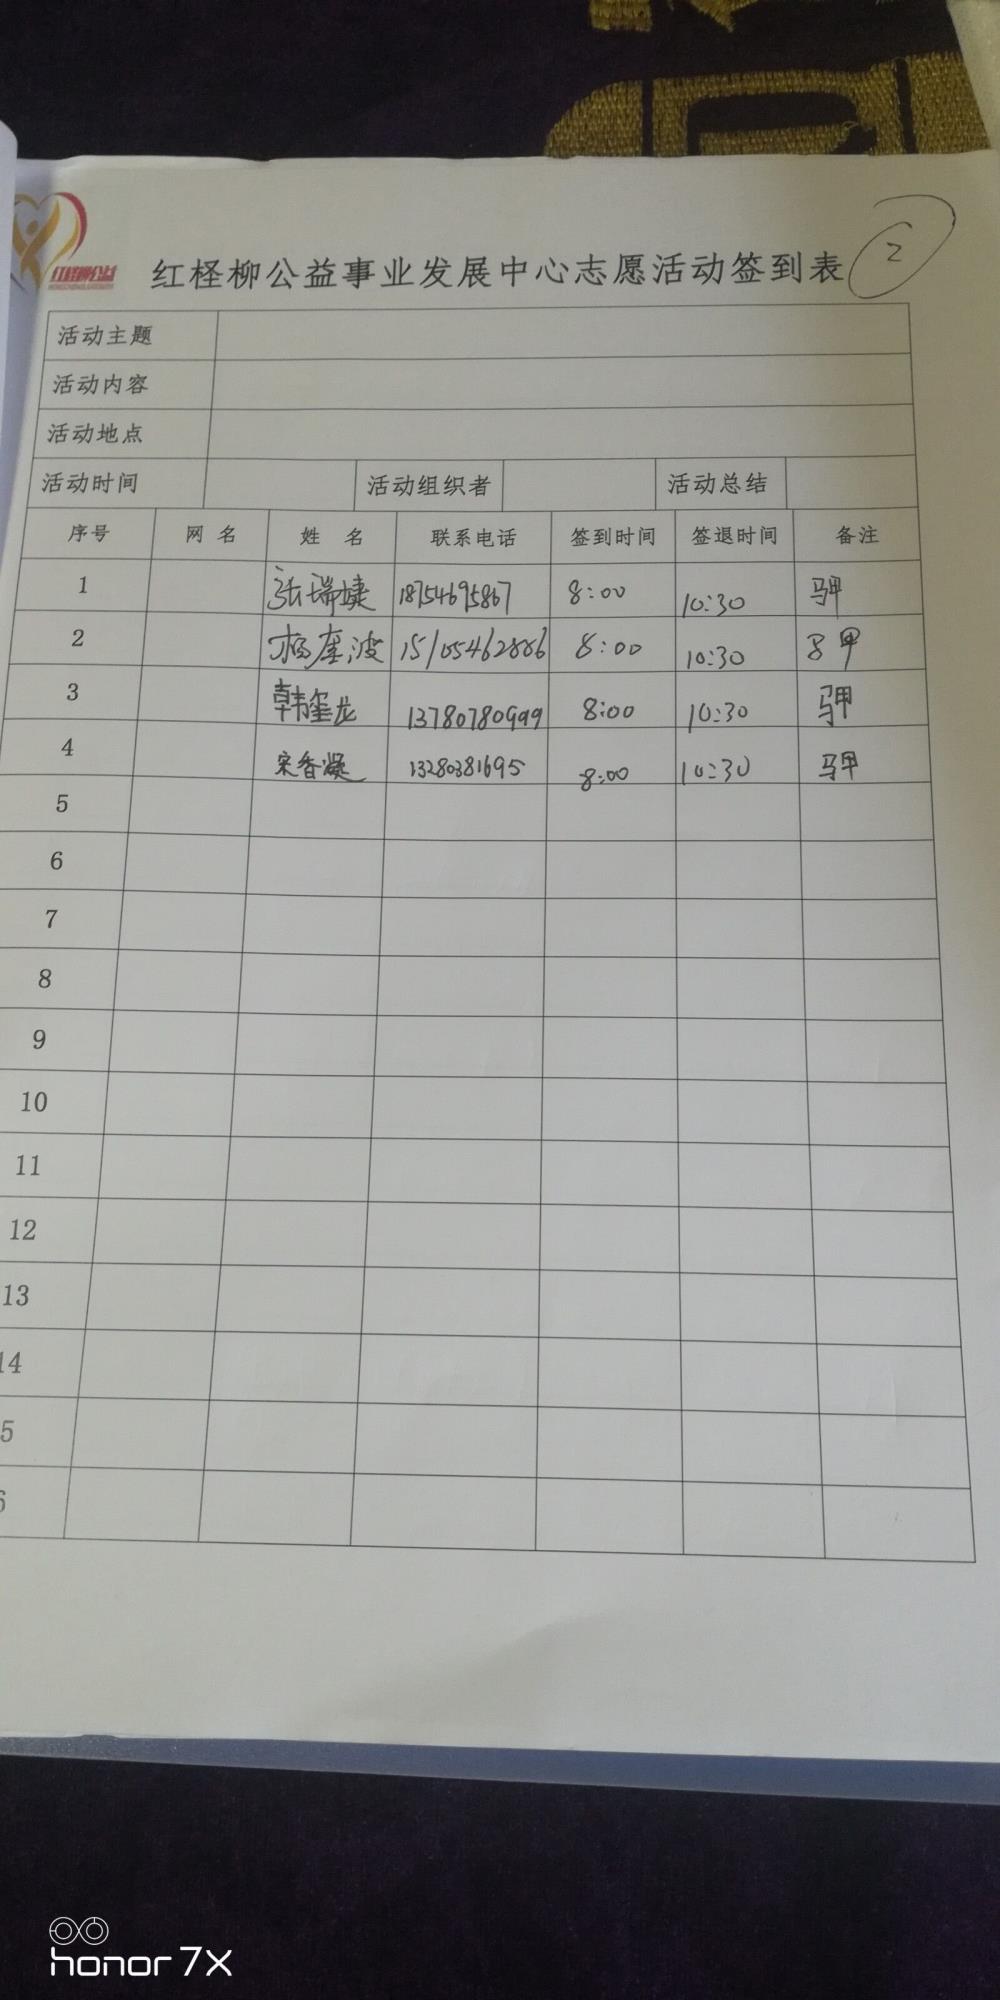 红柽柳公益
红柽柳公益事业发展中心志愿活动签到表 2
活动主题
活动内容
活动地点
活动时间 活动组织者 活动总结
序号 网名 姓名 联系电话 签到时间 签退时间 备注
1 张瑞婕 18754695867 8:00 10:30 马甲
2 杨奎波 15105462886 8:00 10:30 马甲
3 韩玺龙 13780780999 8:00 10:30 马甲
4 宋香凝 13280381695 8:00 10:30 马甲
5
6
7
8
9
10
11
12
13
14
5
6
honor 7X